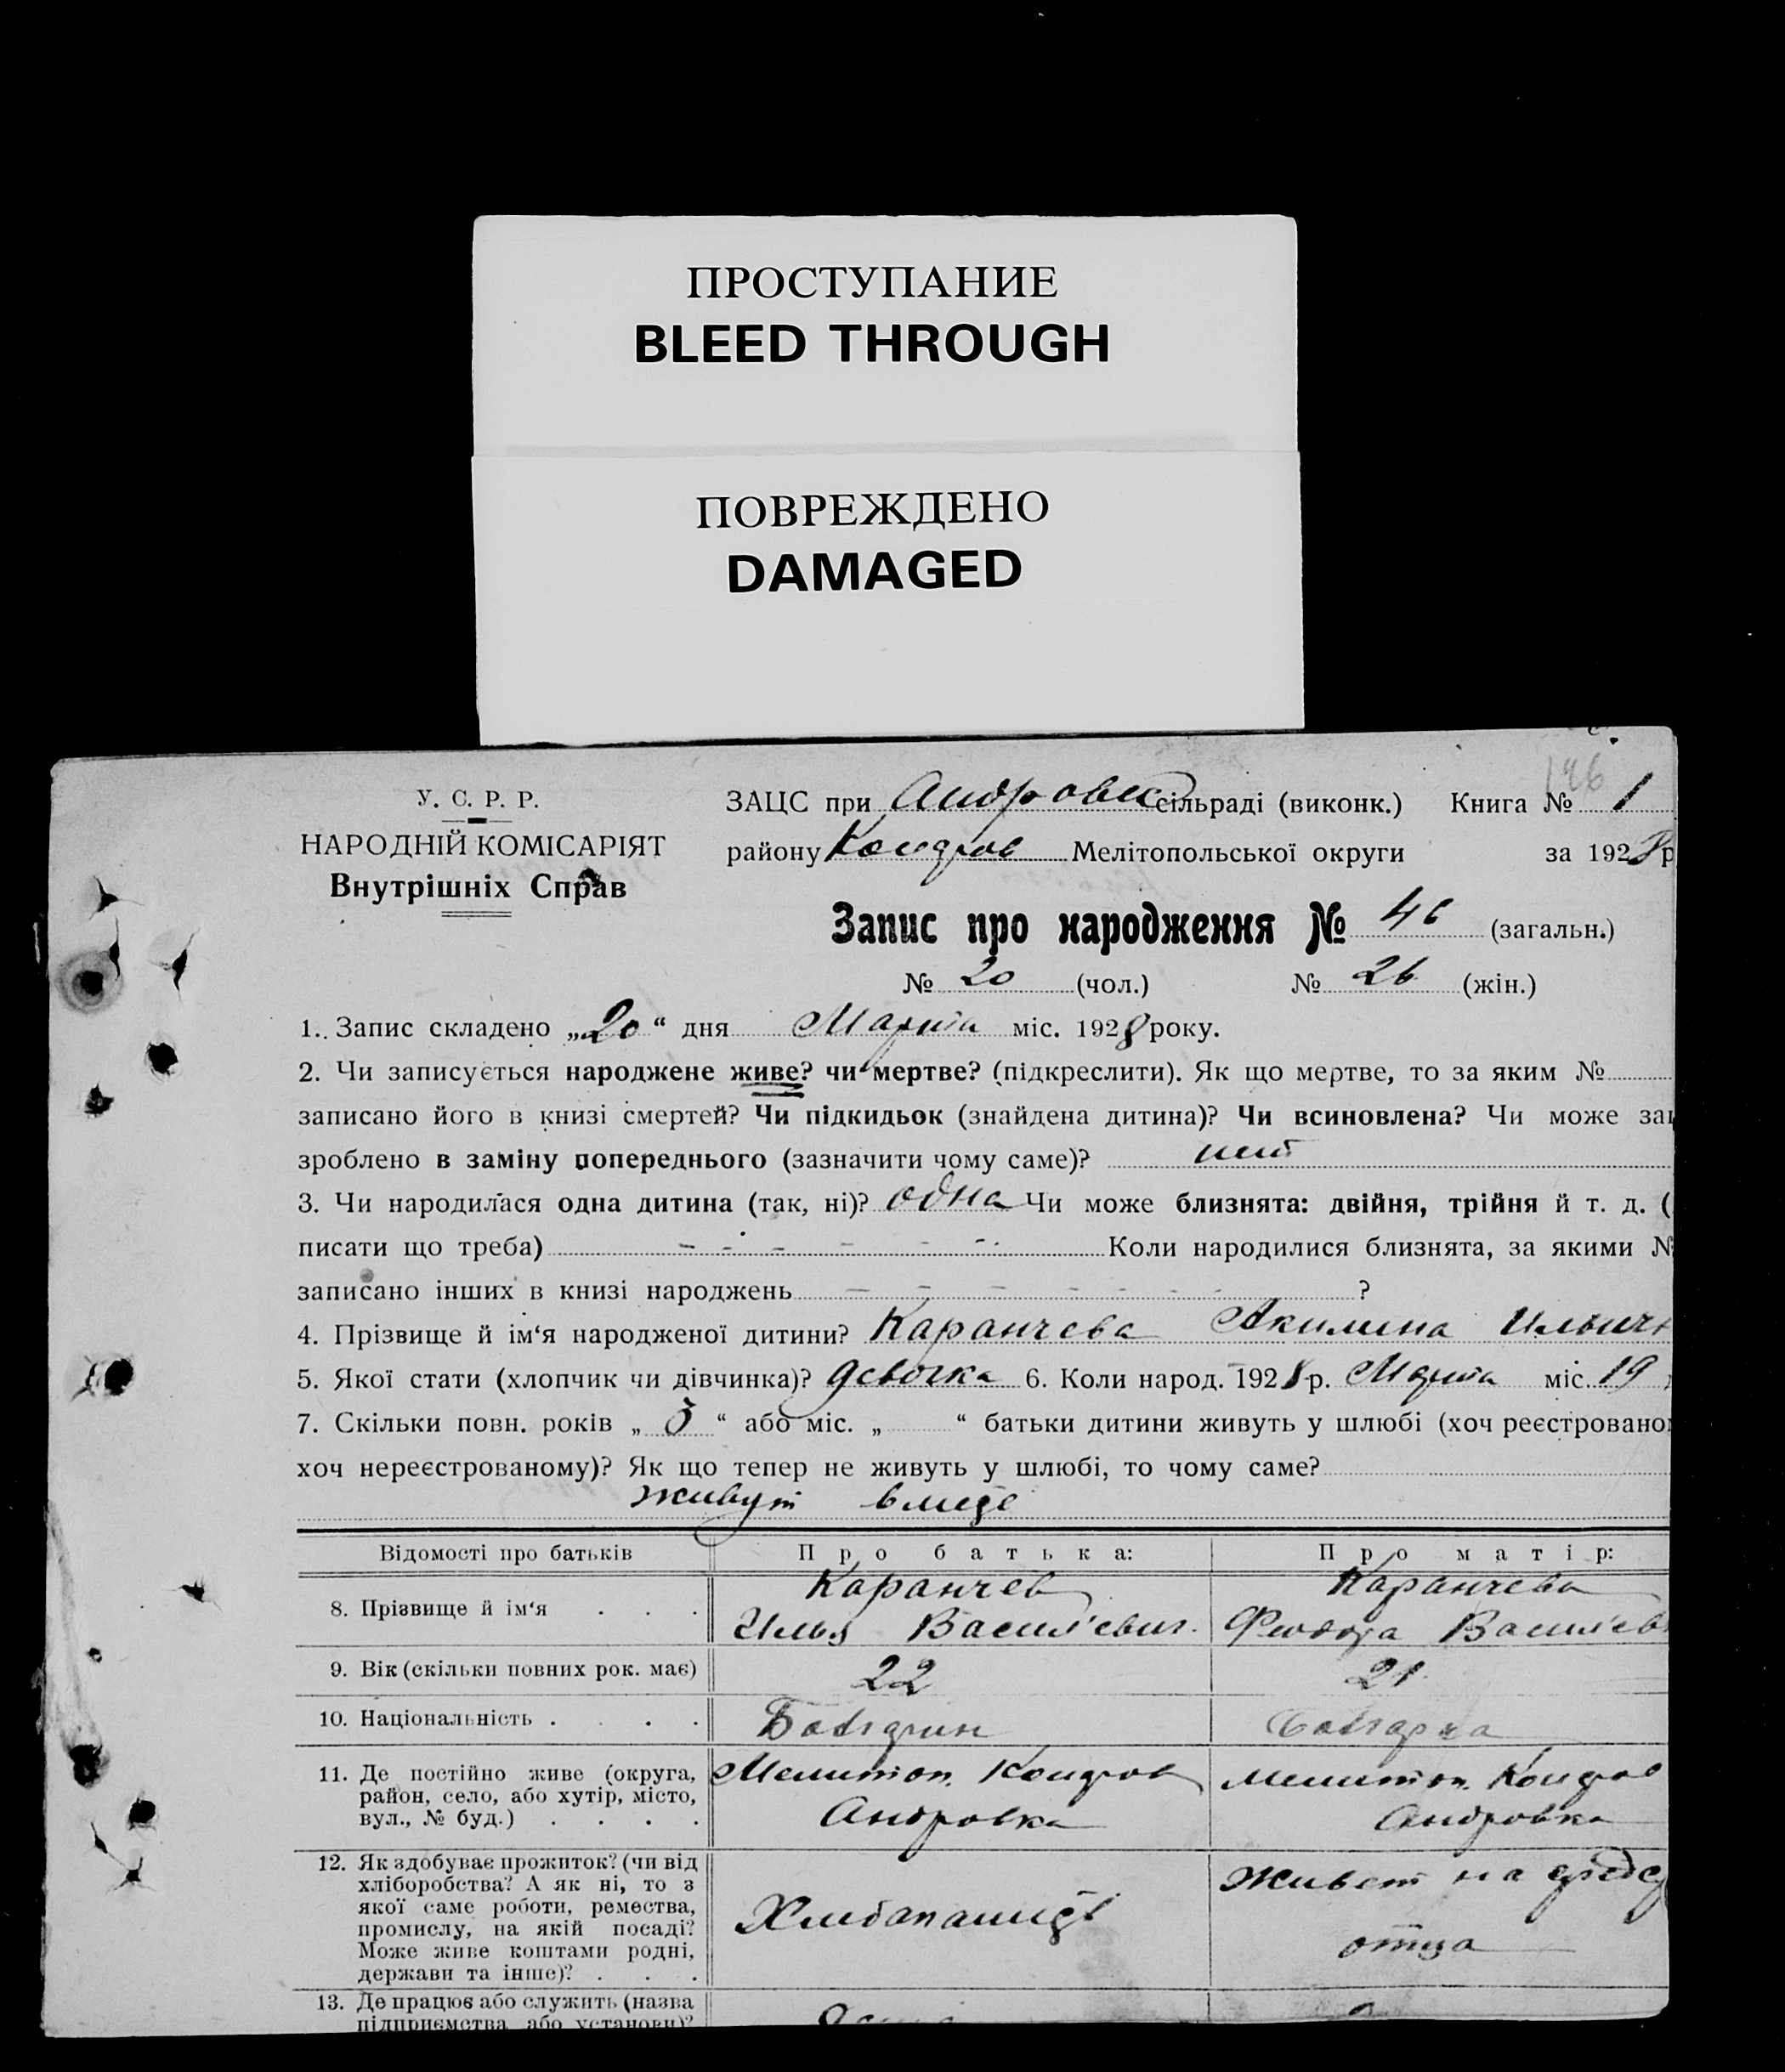 ПРОСТУПАНИЕ
BLEED THROUGH
ПОВРЕЖДЕНО
DAMAGED
126
У. С. Р. Р.
НАРОДНІЙ КОМІСАРІЯТ
Внутрішніх Справ
ЗАЦС при Андровск сільраді (виконк.) Книга № 1
району Колдров Мелітопольської округи за 1928 р
Запис про народження № 46 (загальн.)
№ 20 (чол.) № 26 (жін.)
1. Запис складено „20“ дня Марта міс. 1928 року.
2. Чи записується народжене живе? чи мертве? (підкреслити). Як що мертве, то за яким №
записано його в книзі смертей? Чи підкидьок (знайдена дитина)? Чи всиновлена? Чи може
зроблено в заміну попереднього (зазначити чому саме)? нет
3. Чи народилася одна дитина (так, ні)? одна Чи може близнята: двійня, трійня й т. д. (
писати що треба) - - - - - - - Коли народилися близнята, за якими №
записано інших в книзі народжень - - - - - - ?
4. Прізвище й ім‘я народженої дитини? Каранчева Акилина Ильичн
5. Якої стати (хлопчик чи дівчинка)? девочка 6. Коли народ. 1928 р. Марта міс. 19
7. Скільки повн. років „ 3 “ або міс. „ “ батьки дитини живуть у шлюбі (хоч реєстровано
хоч нереєстрованому)? Як що тепер не живуть у шлюбі, то чому саме?
живут
Відомості про батьків Про батька: Про матір:
8. Прізвище й ім‘я . . . Каранчев Илья Васильевич. Каранчева Феодора Васильев
9. Вік (скільки повних рок. має) 22 21
10. Національність . . . . Болгарин Болгарка
11. Де постійно живе (округа, район, село, або хутір, місто, вул., № буд.) . . . . Мелитоп. Колдров Андровка Мелитоп. Колдров Андровка
12. Як здобуває прожиток? (чи від хліборобства? А як ні, то з якої саме роботи, ремества, промислу, на якій посаді? Може живе коштами родні, держави та інше)? . . . Хлибопашец Живет на сред отца
13. Де працює або служить (назва
підприємства або установи)?